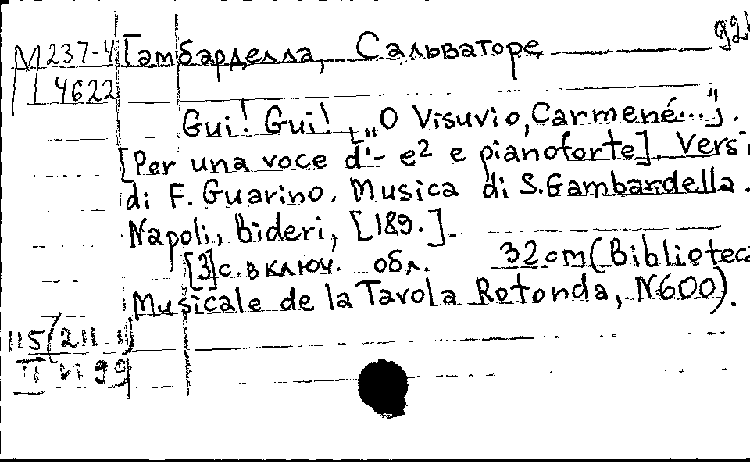 М 237-4 Гамбарделла, Сальваторе
4622
Gui! Gui! ["O Visuvio, Carmené..."].
[Per una voce d'- e² e pianoforte]. Versi
di F. Guarino. Musica di S. Gambardella.
Napoli, Bideri, [189.].
[3]с. включ. обл. 32 cm (Biblioteca
Musicale de la Tavola Rotonda, N600).